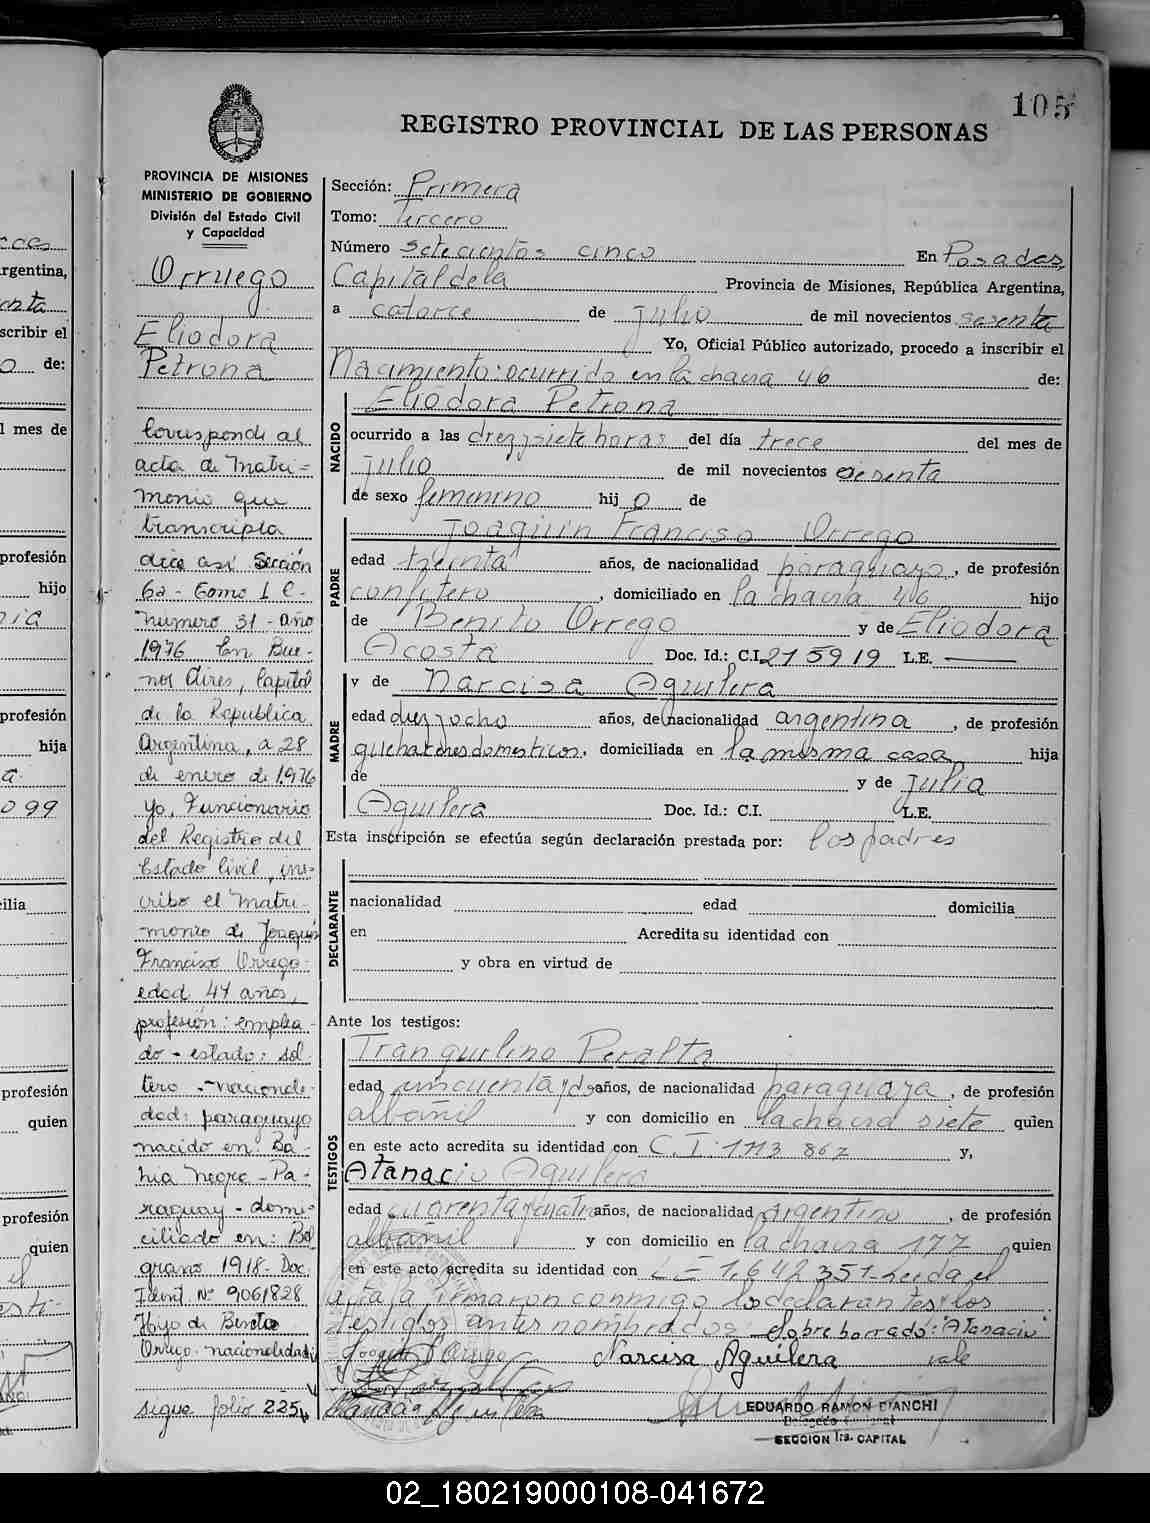 105
REGISTRO PROVINCIAL DE LAS PERSONAS
PROVINCIA DE MISIONES
MINISTERIO DE GOBIERNO
División del Estado Civil
y Capacidad
Orruego
Eliodora
Petrona
Corresponde al
acta de Matri=
monio que
transcripta
dice así Sección
6a - Tomo 1 C -
Numero 31 - año
1976 En Bue-
nos Aires, Capital
de la Republica
Argentina, a 28
de enero de 1976
yo, Funcionario
del Registro del
Estado Civil, ins-
cribo el Matri-
-monio de Joaquín
Francisco Orrego-
edad 47 años,
profesión: emplea-
do - estado: sol-
tero - naciona-
dad: paraguayo
nacido en: Ba-
hia Negra - Pa-
raguay - domi-
ciliado en: Bel
grano 1918 - Doc.
Ident. Nº 9061828
Hijo de Benito
Orrego. nacionalidad
sigue folio 225
Sección: Primera
Tomo: Tercero
Número setecientos cinco En Posadas,
Capital de la Provincia de Misiones, República Argentina,
a catorce de julio de mil novecientos sesenta
Yo, Oficial Público autorizado, procedo a inscribir el
Nacimiento: ocurrido en la chacra 46 de:
NACIDO
Eliodora Petrona
ocurrido a las diez y siete horas del día trece del mes de
julio de mil novecientos sesenta
de sexo femenino hij o de
PADRE
Joaquin Francisco Orrego
edad treinta años, de nacionalidad paraguayo, de profesión
confitero, domiciliado en la chacra 46 hijo
de Benito Orrego y de Eliodora
Acosta Doc. Id.: C.I. 215919 L.E.
MADRE
y de Narcisa Aguilera
edad diez y ocho años, de nacionalidad argentina, de profesión
quehaceres domesticos, domiciliada en la misma casa hija
de y de Julia
Aguilera Doc. Id.: C.I. L.E.
Esta inscripción se efectúa según declaración prestada por: los padres
DECLARANTE
nacionalidad edad domicilia
en Acredita su identidad con
y obra en virtud de
Ante los testigos:
TESTIGOS
Tranquilino Peralta
edad cincuenta y dos años, de nacionalidad paraguaya, de profesión
albañil y con domicilio en la chacra siete quien
en este acto acredita su identidad con C.I. 1113 867 y,
Atanacio Aguilera
edad cuarenta y cuatro años, de nacionalidad argentino, de profesión
albañil y con domicilio en la chacra 177 quien
en este acto acredita su identidad con L E 1.642.351- Leida el
acta la firmaron conmigo los declarantes y los
testigos antes nombrados: Sobre borrado: "Atanacio"
vale
Narcisa Aguilera
EDUARDO RAMON BIANCHI
SECCION 1ra. CAPITAL
rgentina,
scribir el
de:
mes de
profesión
hijo
profesión
hija
099
profesión
quien
profesión
quien
02_180219000108-041672